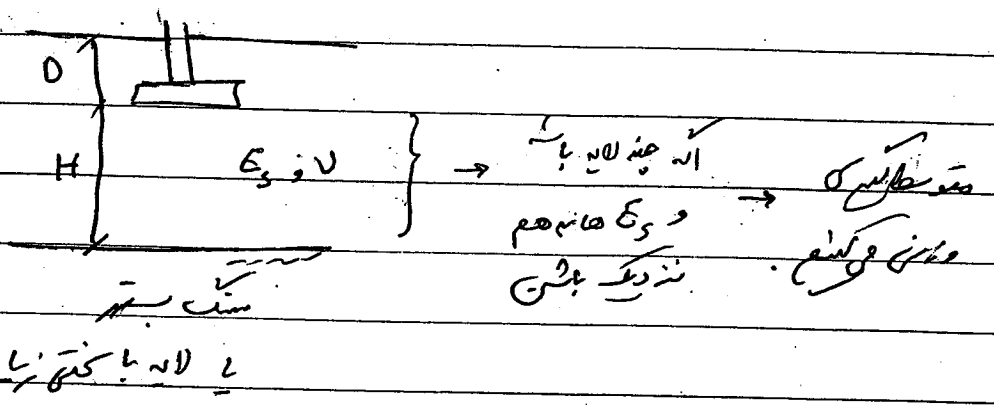 D
H
E_s و ν
→ اگه چند لایه باشه
و E_s ها به هم
نزدیک باشن
→ متوسط گیری
وزنی می کنیم.
سنگ بستر
یا لایه با سختی زیاد